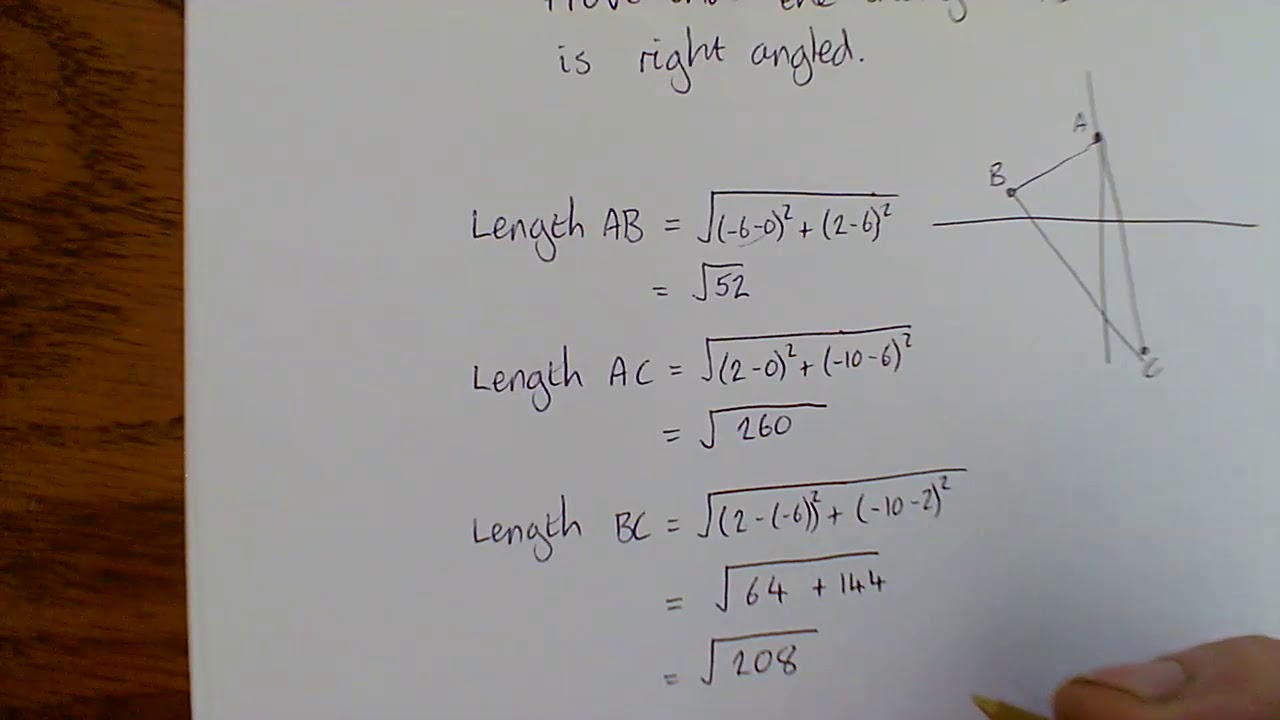 is right angled.
A
B
Length AB = √((-6-0)² + (2-6)²)
= √52
Length AC = √((2-0)² + (-10-6)²)
C
= √260
Length BC = √((2-(-6))² + (-10-2)²)
= √64 + 144
= √208